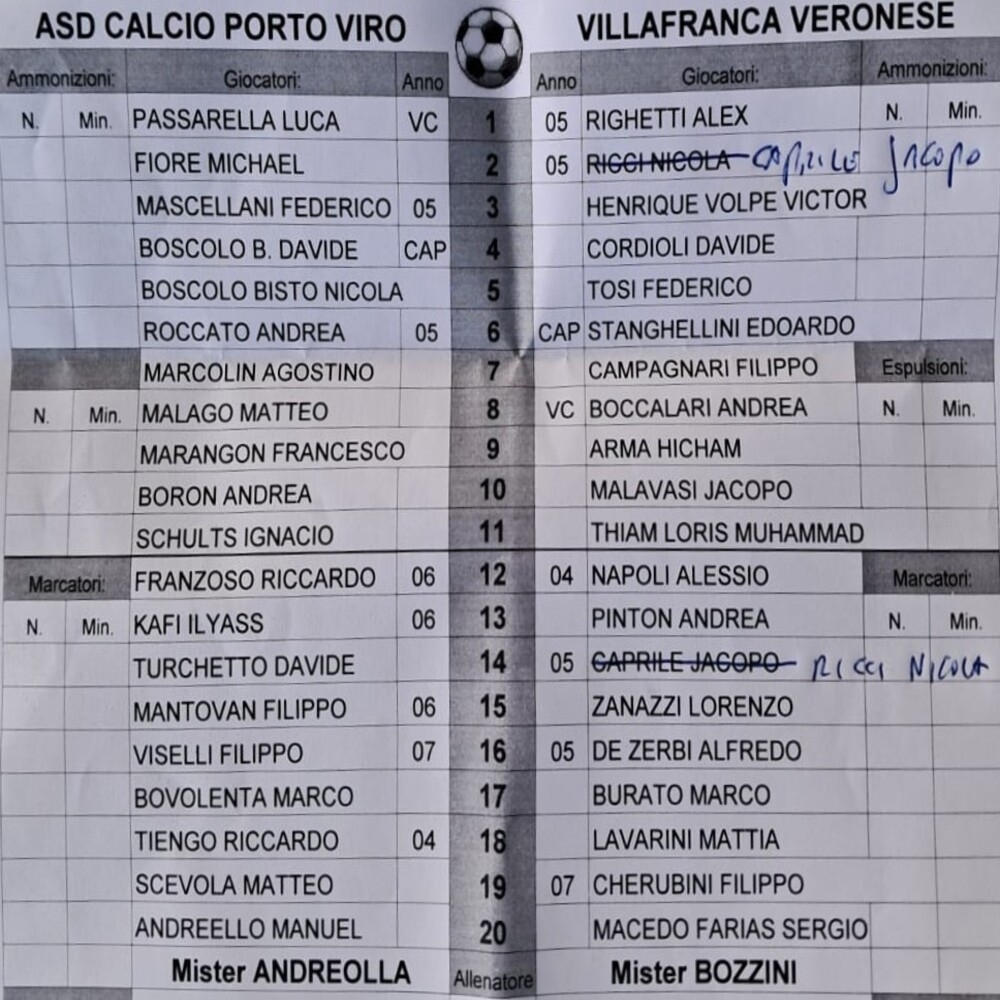 ASD CALCIO PORTO VIRO VILLAFRANCA VERONESE
Ammonizioni: Giocatori: Anno Anno Giocatori: Ammonizioni:
N. Min. PASSARELLA LUCA VC 1 05 RIGHETTI ALEX N. Min.
FIORE MICHAEL 2 05 RICCI NICOLA CAPRILE JACOPO
MASCELLANI FEDERICO 05 3 HENRIQUE VOLPE VICTOR
BOSCOLO B. DAVIDE CAP 4 CORDIOLI DAVIDE
BOSCOLO BISTO NICOLA 5 TOSI FEDERICO
ROCCATO ANDREA 05 6 CAP STANGHELLINI EDOARDO
MARCOLIN AGOSTINO 7 CAMPAGNARI FILIPPO Espulsioni:
N. Min. MALAGO MATTEO 8 VC BOCCALARI ANDREA N. Min.
MARANGON FRANCESCO 9 ARMA HICHAM
BORON ANDREA 10 MALAVASI JACOPO
SCHULTS IGNACIO 11 THIAM LORIS MUHAMMAD
Marcatori: FRANZOSO RICCARDO 06 12 04 NAPOLI ALESSIO Marcatori:
N. Min. KAFI ILYASS 06 13 PINTON ANDREA N. Min.
TURCHETTO DAVIDE 14 05 CAPRILE JACOPO RICCI NICOLA
MANTOVAN FILIPPO 06 15 ZANAZZI LORENZO
VISELLI FILIPPO 07 16 05 DE ZERBI ALFREDO
BOVOLENTA MARCO 17 BURATO MARCO
TIENGO RICCARDO 04 18 LAVARINI MATTIA
SCEVOLA MATTEO 19 07 CHERUBINI FILIPPO
ANDREELLO MANUEL 20 MACEDO FARIAS SERGIO
Mister ANDREOLLA Allenatore Mister BOZZINI